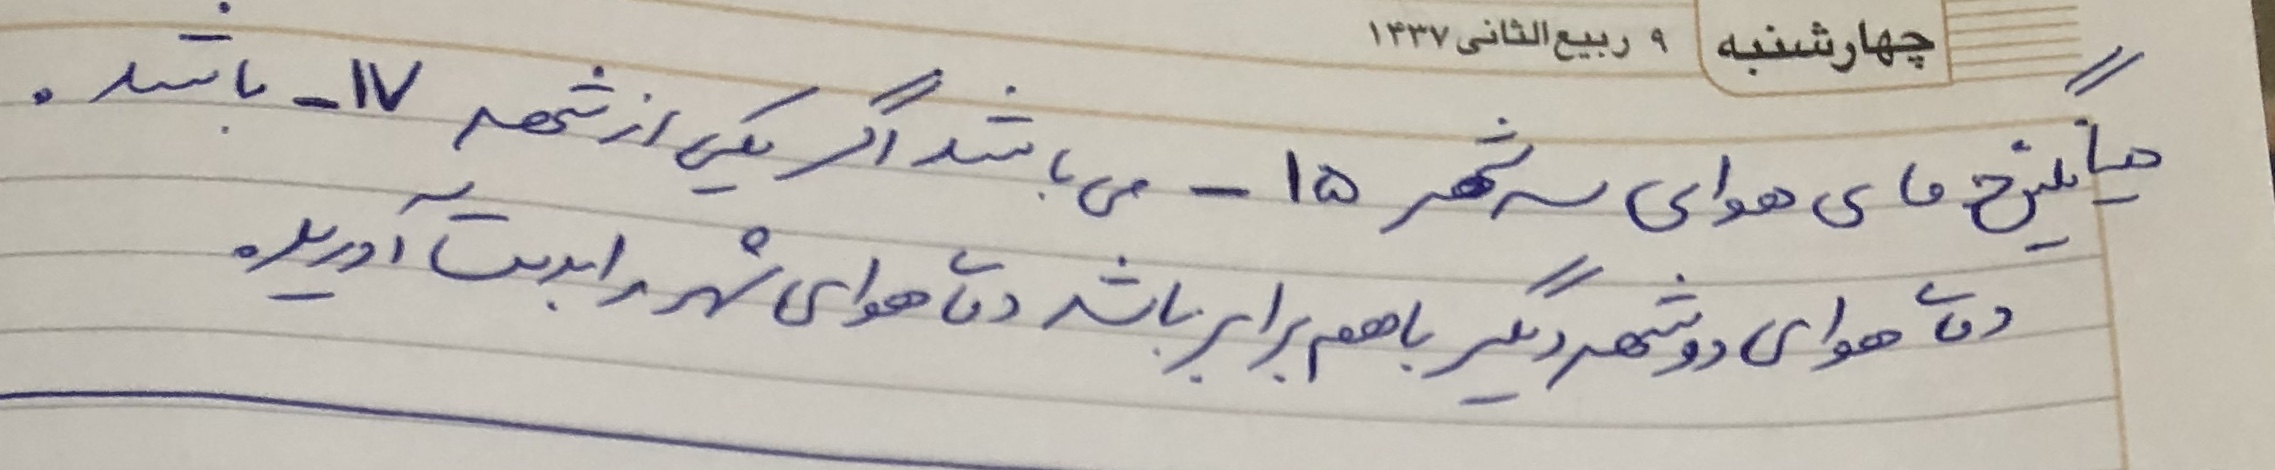 چهارشنبه ۹ ربیع الثانی ۱۴۳۷
میانگین دمای هوای سه شهر ۱۵- می باشد اگر یکی از شهر ۱۷- باشد.
دمای هوای دو شهر دیگر با هم برابر باشد دمای هوای شهر را بدست آورید.